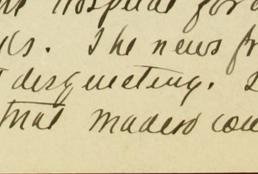 Hospital for
. The news fr
disquieting.
that Madero cou